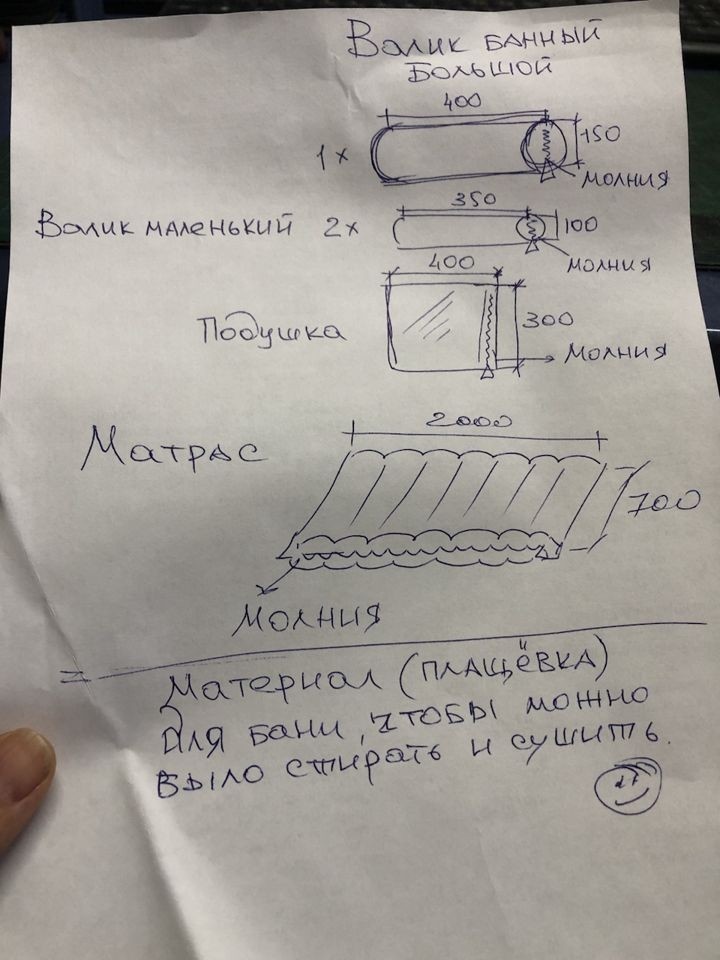 Валик банный
Большой
400
1x
150
молния
Валик маленький 2x
350
100
молния
400
Подушка
300
молния
2000
Матрас
700
молния
Материал (плащёвка)
Для бани, чтобы можно
было стирать и сушить.